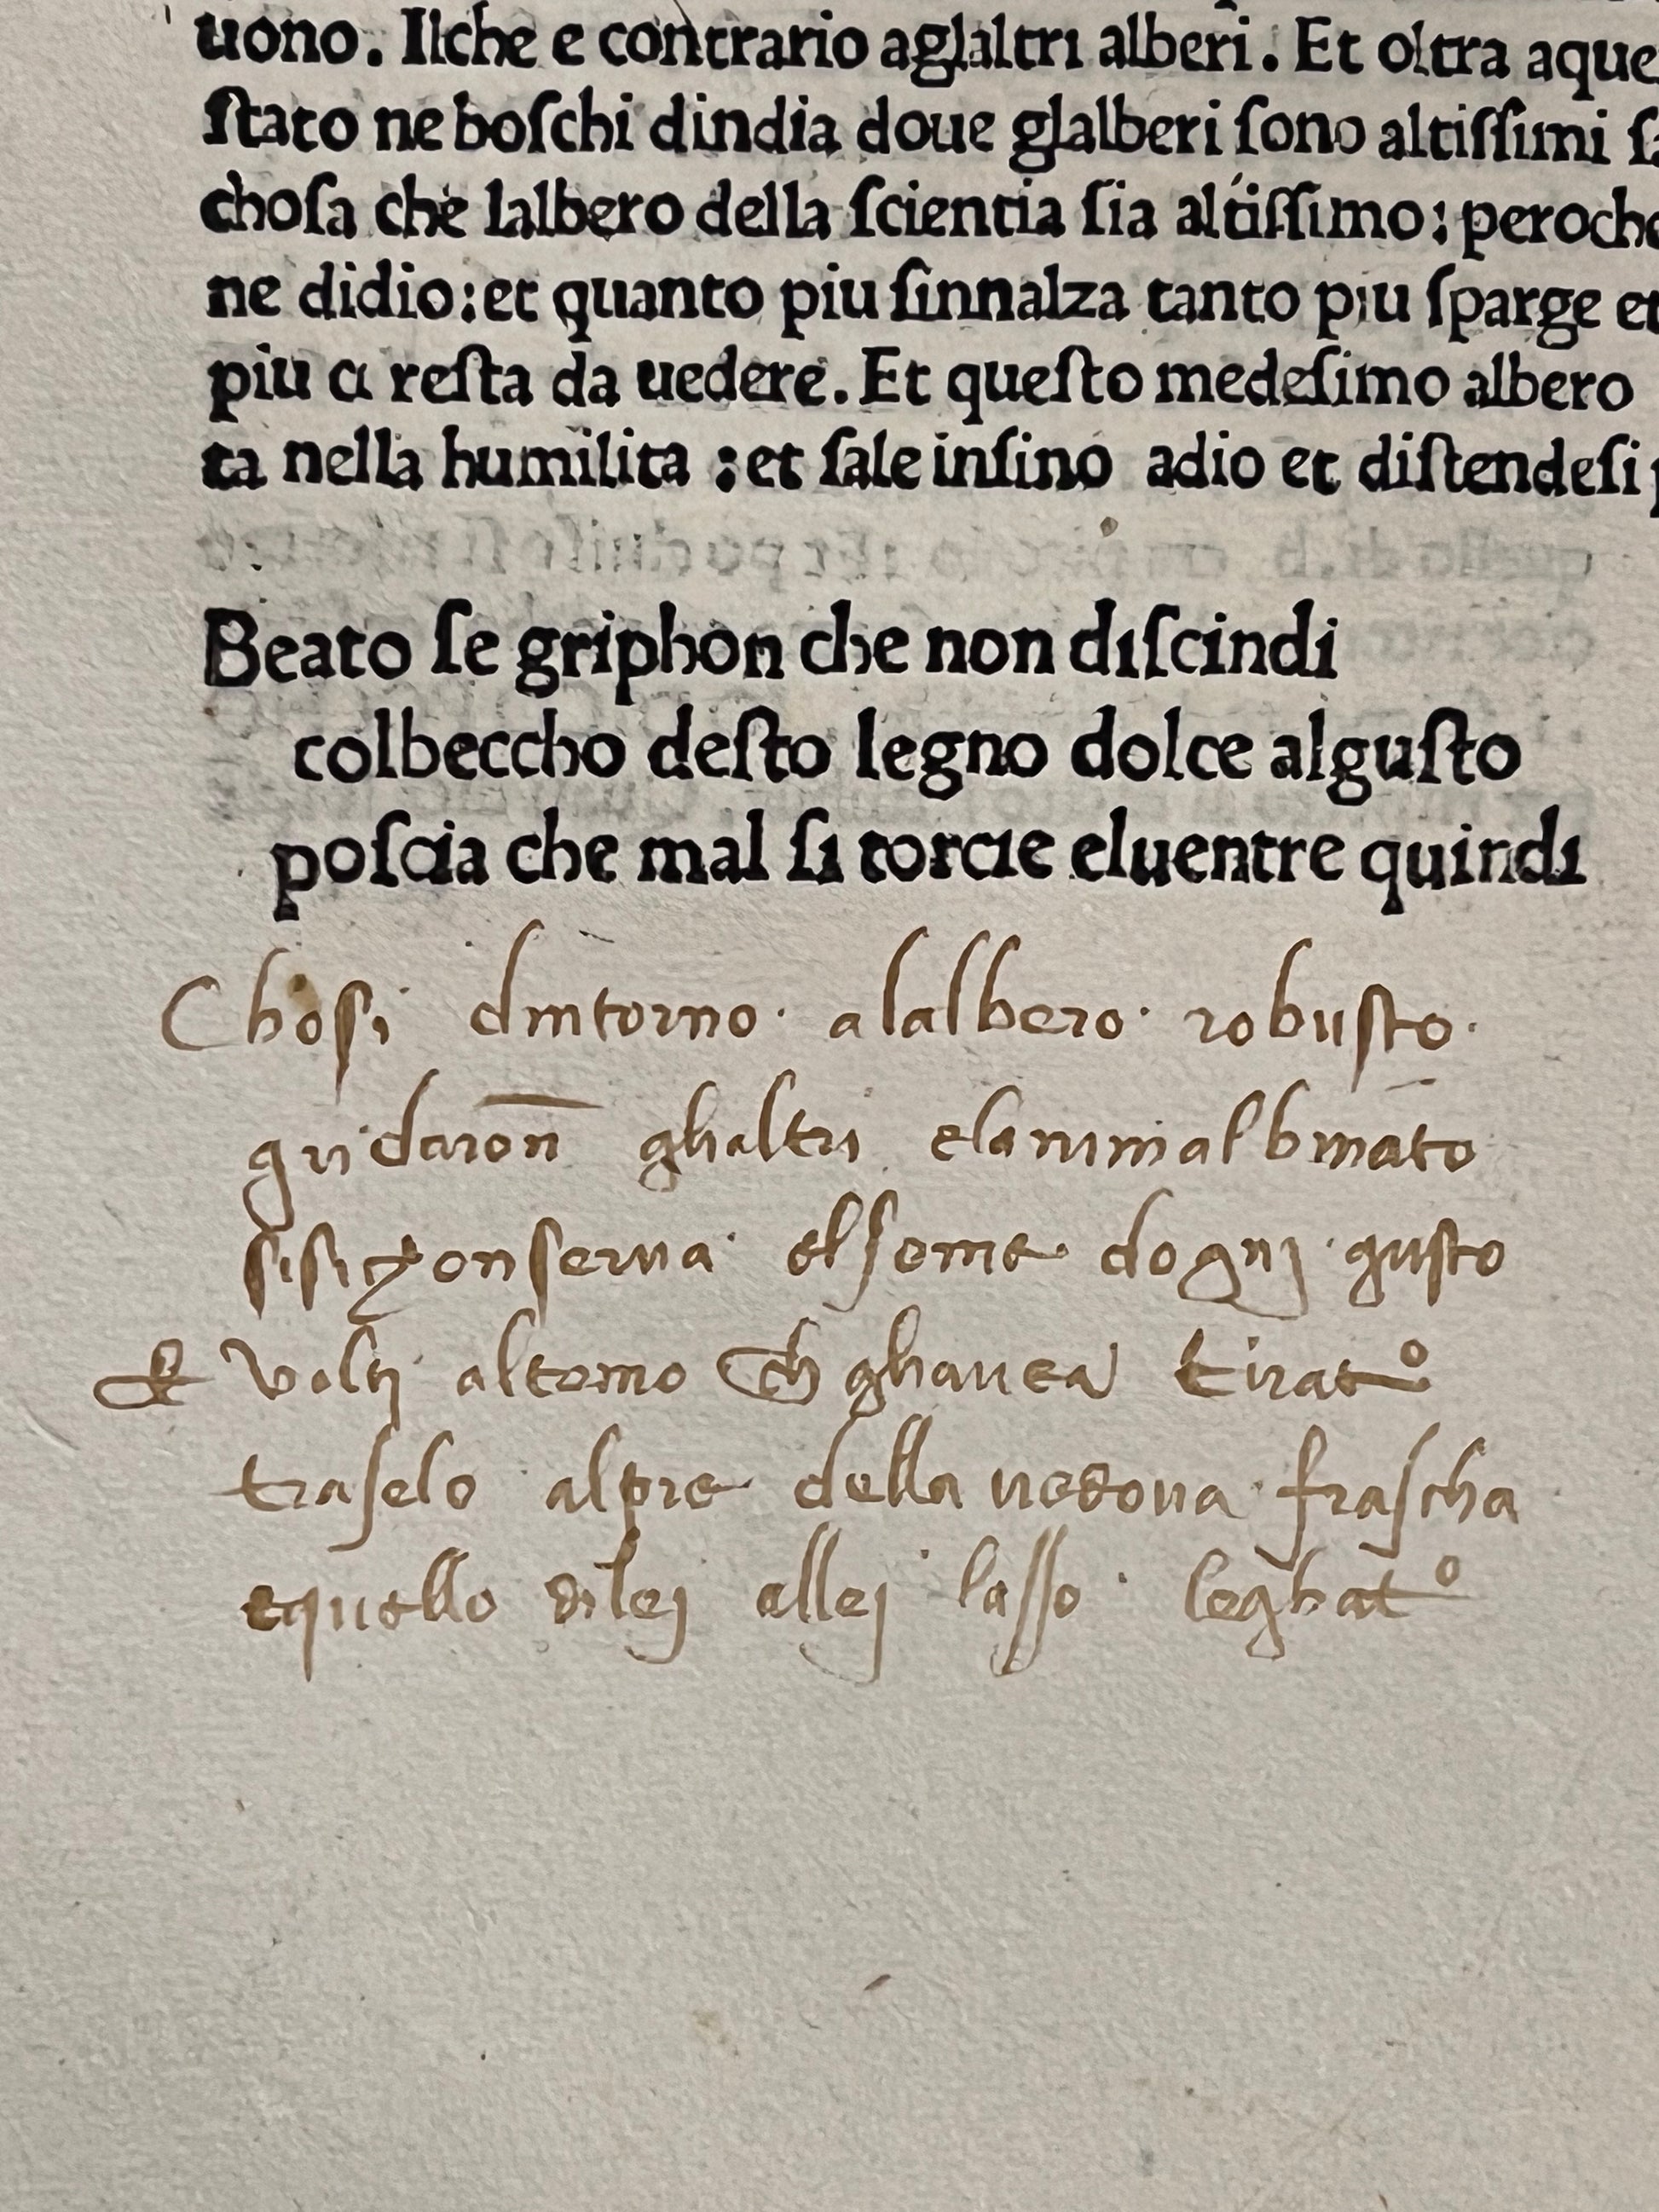 uono. Ilche e contrario aglaltri alberi. Et oltra aque
ſtato ne boſchi dindia doue glalberi ſono altiſſimi ſa
choſa che lalbero della ſcientia ſia altiſſimo: peroche
ne didio: et quanto piu ſinnalza tanto piu ſparge et
piu ci reſta da uedere. Et queſto medeſimo albero
ta nella humilita : et ſale inſino adio et diſtendeſi p
Beato ſe griphon che non diſcindi
colbeccho deſto legno dolce alguſto
poſcia che mal ſi torcie eluentre quindi
Choſi dintorno · alalbero · robuſto ·
gridaron̄ ghaltri elanimal binato
ſiſi chonſerua · elſeme dognj · guſto
& voltj altemo ch ghauea tirato
traſelo alpie della uedoua fraſcha
equello dilej allej laſſo · leghato